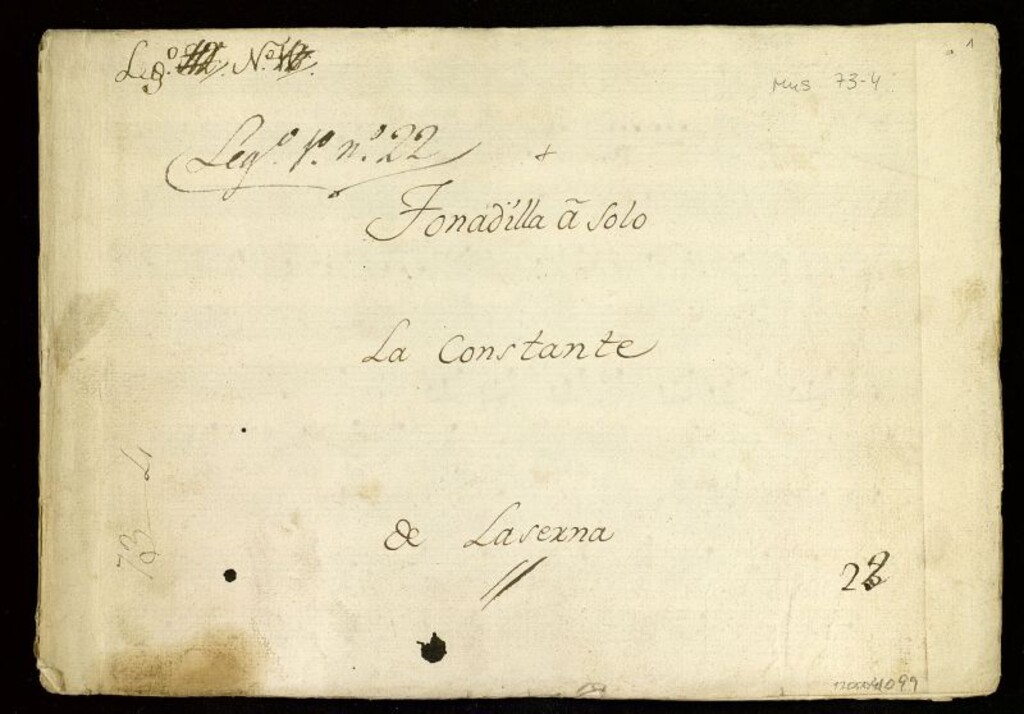 Leg.º Nº
Mus 73-4
1
Legº. 1º. nº. 22
Tonadilla ã Solo
La Constante
de Laserna
22
73-4